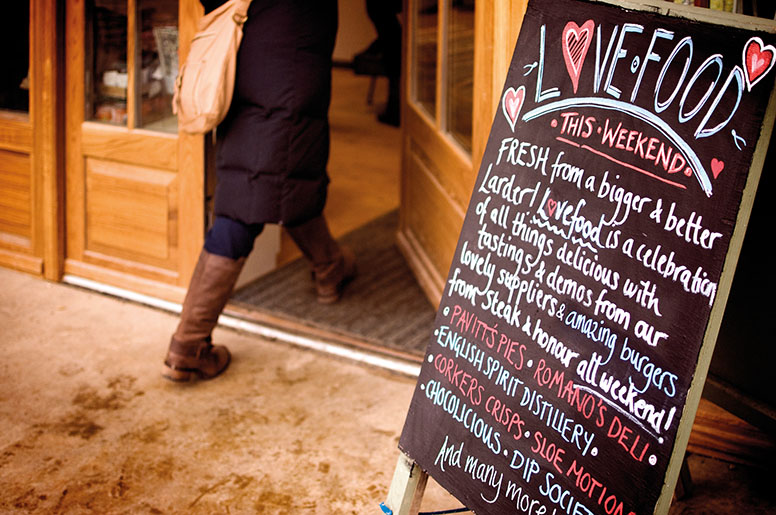 LOVE·FOOD
·THIS·WEEKEND·
FRESH from a bigger & better
Larder! Lovefood is a celebration
of all things delicious with
tastings & demos from our
lovely suppliers & amazing burgers
from Steak & honour all weekend!
·PAVITT'S PIES· ROMANO'S DELI·
·ENGLISH SPIRIT DISTILLERY·
·CORKERS CRISPS· SLOE MOTION·
·CHOCOLICIOUS· DIP SOCIETY
And many more